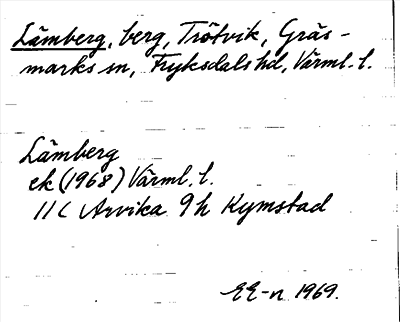 Lämberg, berg, Trötvik, Gräs-
marks sn, Fryksdals hd, Värml. l.
Lämberg
ek (1968) Värml. l.
11 C Arvika 9 h Kymstad
EE-n 1969.